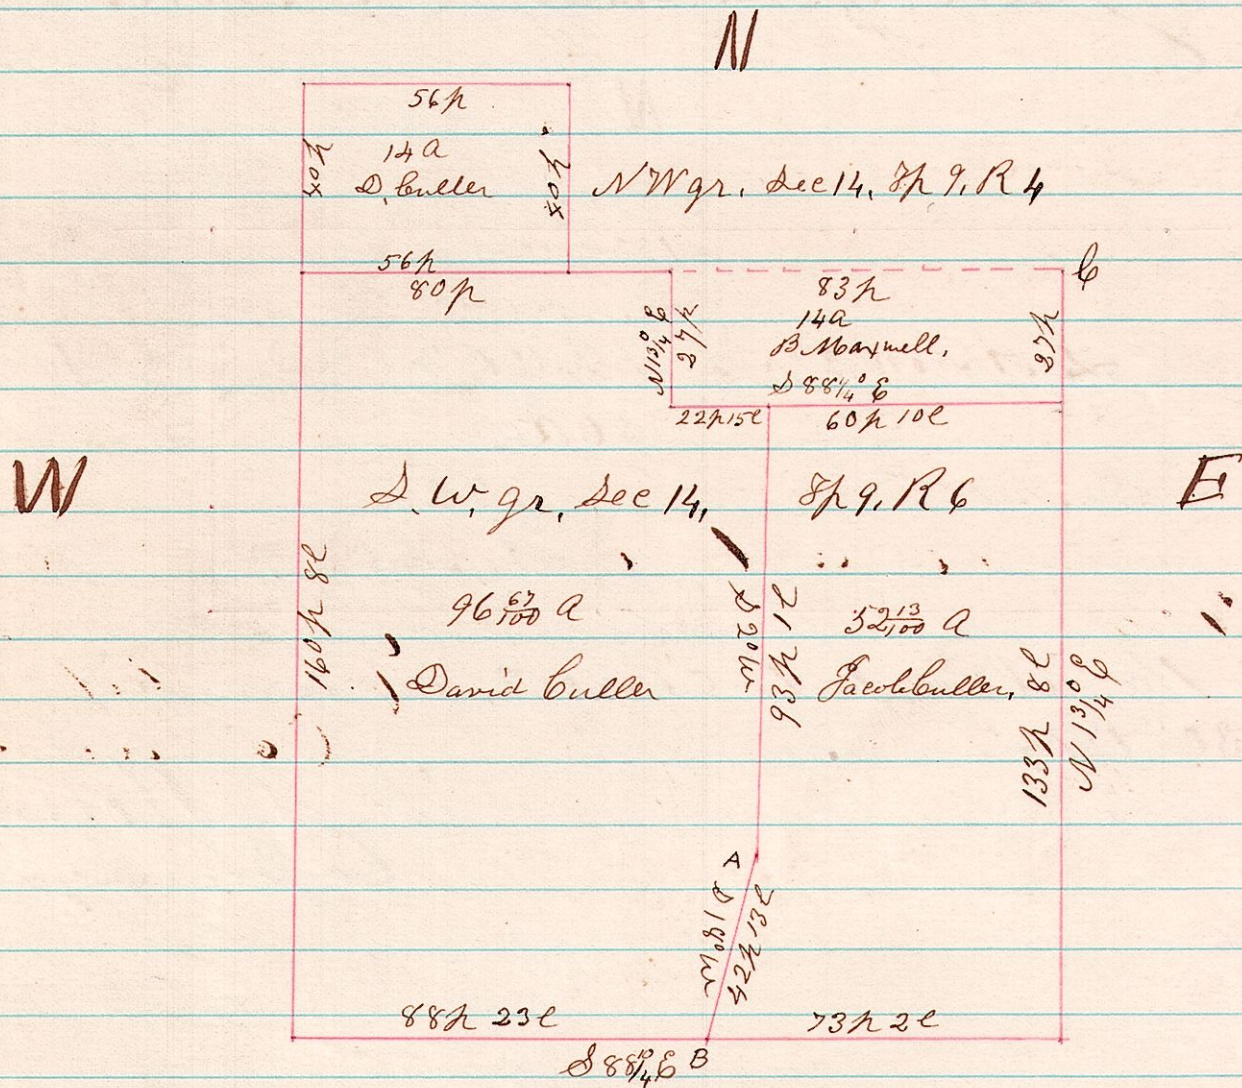 N
56p
40p
14a
D. Culler
40p
NW qr. Sec 14, Tp 9, R 4
56p
80p
C
83p
14a
B Maxwell,
S 88 1/4° E
N 1 3/4° E
27p
27p
22p 15l
60p 10l
W
S. W. qr. Sec 14, Tp 9, R 6
E
160p 8l
96 67/100 a
David Culler
S 2° W
93p 1l
52 13/100 a
Jacob Culler,
133p 8l
N 1 3/4° E
A
S 18° W
42p 13l
88p 23l
73p 2l
S 88 1/4° E
B